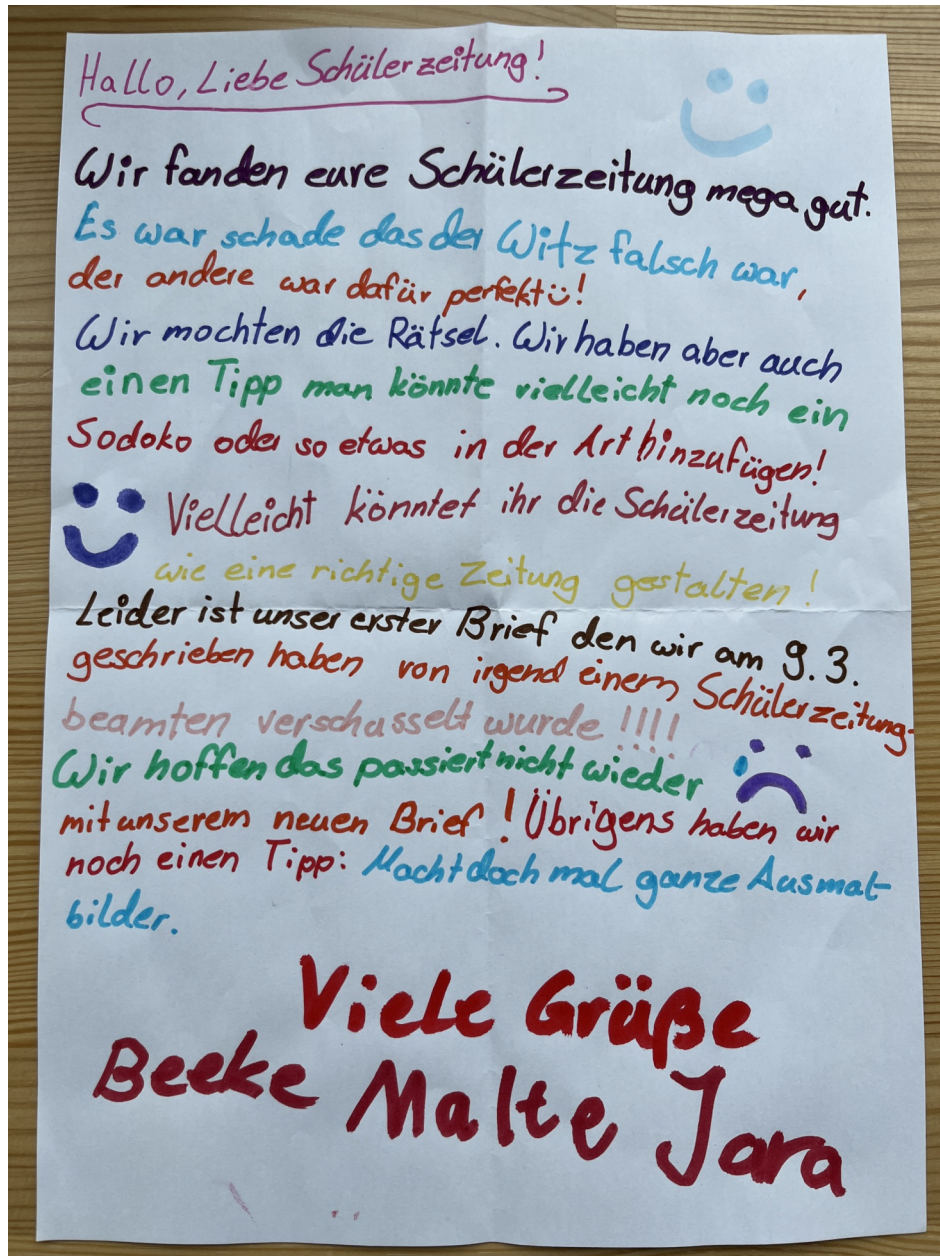 Hallo, Liebe Schülerzeitung!
Wir fanden eure Schülerzeitung mega gut.
Es war schade das der Witz falsch war,
der andere war dafür perfekt!
Wir mochten die Rätsel. Wir haben aber auch
einen Tipp man könnte vielleicht noch ein
Sodoko oder so etwas in der Art hinzufügen!
Vielleicht könntet ihr die Schülerzeitung
wie eine richtige Zeitung gestalten!
Leider ist unser erster Brief den wir am 9.3.
geschrieben haben von irgend einem Schülerzeitung-
beamten verschusselt wurde !!!!
Wir hoffen das passiert nicht wieder
mit unserem neuen Brief! Übrigens haben wir
noch einen Tipp: Macht doch mal ganze Ausmal-
bilder.
Viele Grüße
Beeke Malte Jara